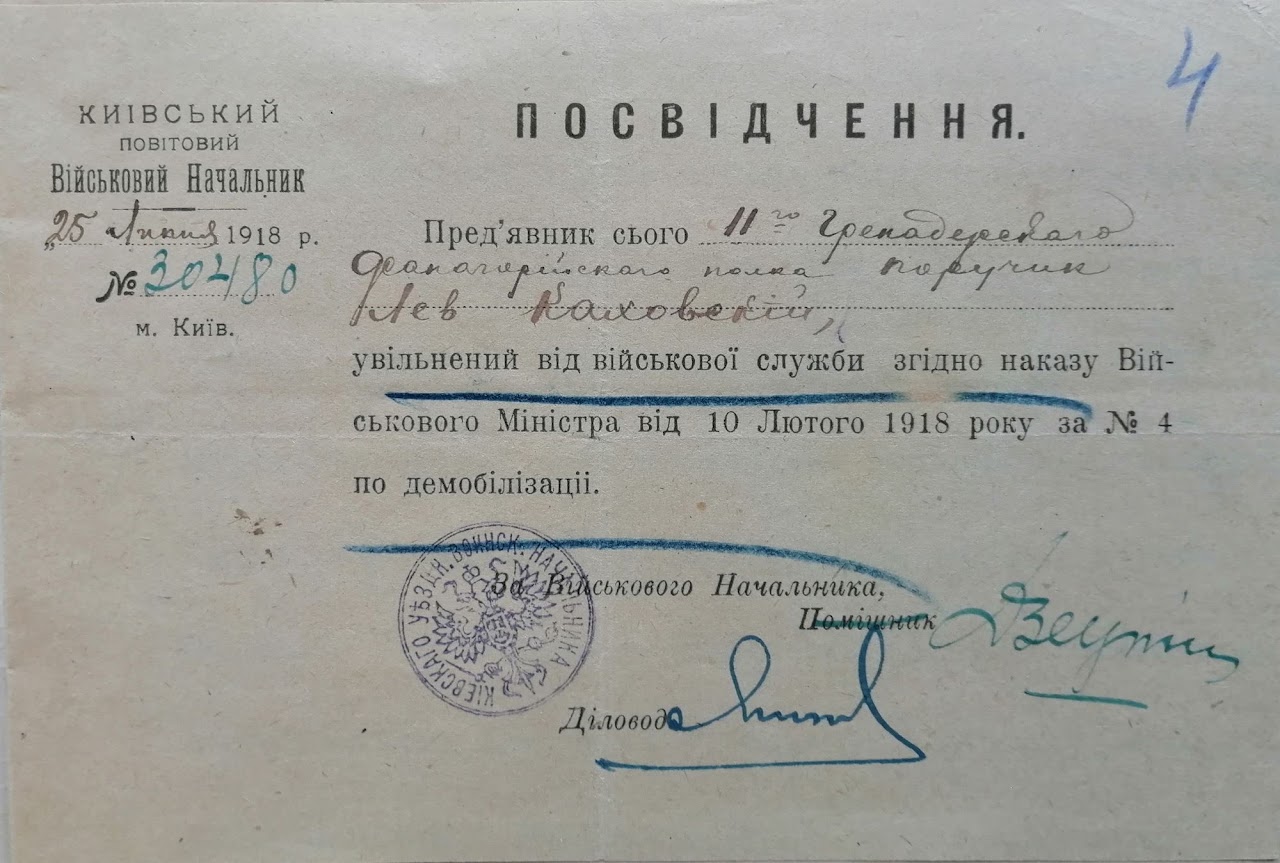 4
КИІВСЬКИЙ
ПОВІТОВИЙ
Військовий Начальник
„25 Липня 1918 р.
№ 30480
м. Київ.
ПОСВІДЧЕННЯ.
Пред'явник сього 11го Гренадерскаго
Фанагорійскаго полка поручик
Лев Каховскій,
увільнений від військової служби згідно наказу Вій-
ськового Міністра від 10 Лютого 1918 року за № 4
по демобілізаціі.
За Військового Начальника,
Помішник
Діловод
КІЕВСКАГО УѢЗДН. ВОИНСК. НАЧАЛЬНИКА